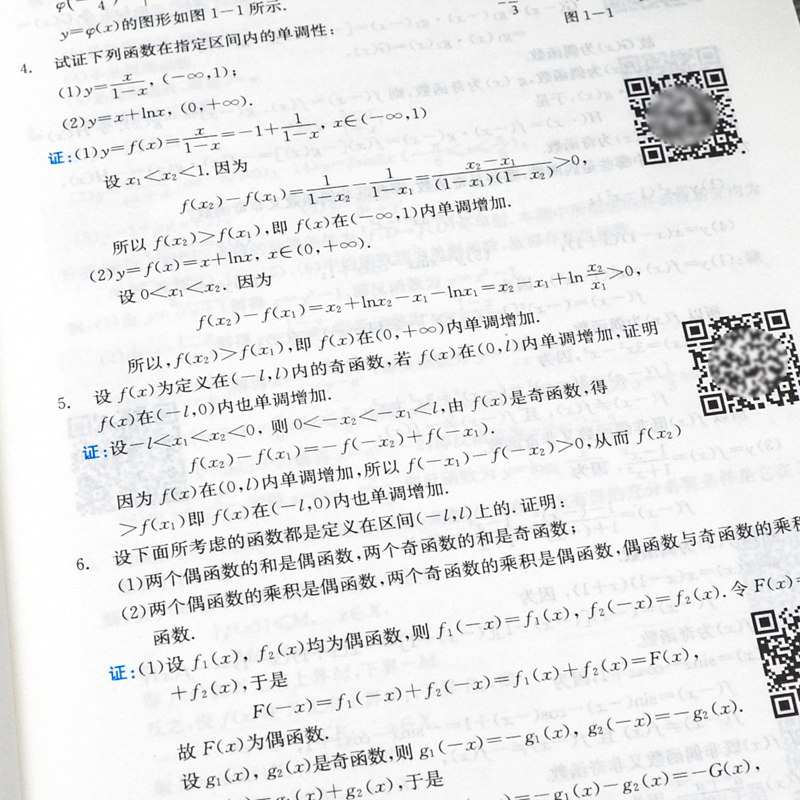 y=φ(x)的图形如图 1-1 所示.
图 1-1
4. 试证下列函数在指定区间内的单调性:
(1)y=x/(1-x), (-∞,1);
(2)y=x+lnx, (0,+∞).
证:(1)y=f(x)=x/(1-x)=-1+1/(1-x), x∈(-∞,1)
设 x₁<x₂<1. 因为
f(x₂)-f(x₁)=1/(1-x₂)-1/(1-x₁)=(x₂-x₁)/((1-x₁)(1-x₂))>0,
所以 f(x₂)>f(x₁),即 f(x)在(-∞,1)内单调增加.
(2)y=f(x)=x+lnx, x∈(0,+∞).
设 0<x₁<x₂. 因为
f(x₂)-f(x₁)=x₂+lnx₂-x₁-lnx₁=x₂-x₁+ln x₂/x₁>0,
所以,f(x₂)>f(x₁),即 f(x)在(0,+∞)内单调增加.
5. 设 f(x)为定义在(-l,l)内的奇函数,若 f(x)在(0,l)内单调增加,证明
f(x)在(-l,0)内也单调增加.
证:设-l<x₁<x₂<0, 则 0<-x₂<-x₁<l,由 f(x)是奇函数,得
f(x₂)-f(x₁)=-f(-x₂)+f(-x₁).
因为 f(x)在(0,l)内单调增加,所以 f(-x₁)-f(-x₂)>0,从而 f(x₂)
>f(x₁)即 f(x)在(-l,0)内也单调增加.
6. 设下面所考虑的函数都是定义在区间(-l,l)上的. 证明:
(1)两个偶函数的和是偶函数,两个奇函数的和是奇函数;
(2)两个偶函数的乘积是偶函数,两个奇函数的乘积是偶函数,偶函数与奇函数的乘积
函数.
证:(1)设 f₁(x), f₂(x)均为偶函数,则 f₁(-x)=f₁(x), f₂(-x)=f₂(x). 令 F(x)=
+f₂(x),于是
F(-x)=f₁(-x)+f₂(-x)=f₁(x)+f₂(x)=F(x),
故 F(x)为偶函数.
设 g₁(x), g₂(x)是奇函数,则 g₁(-x)=-g₁(x), g₂(-x)=-g₂(x).
g₁(x)+g₂(x),于是
-g₁(x)-g₂(x)=-G(x),